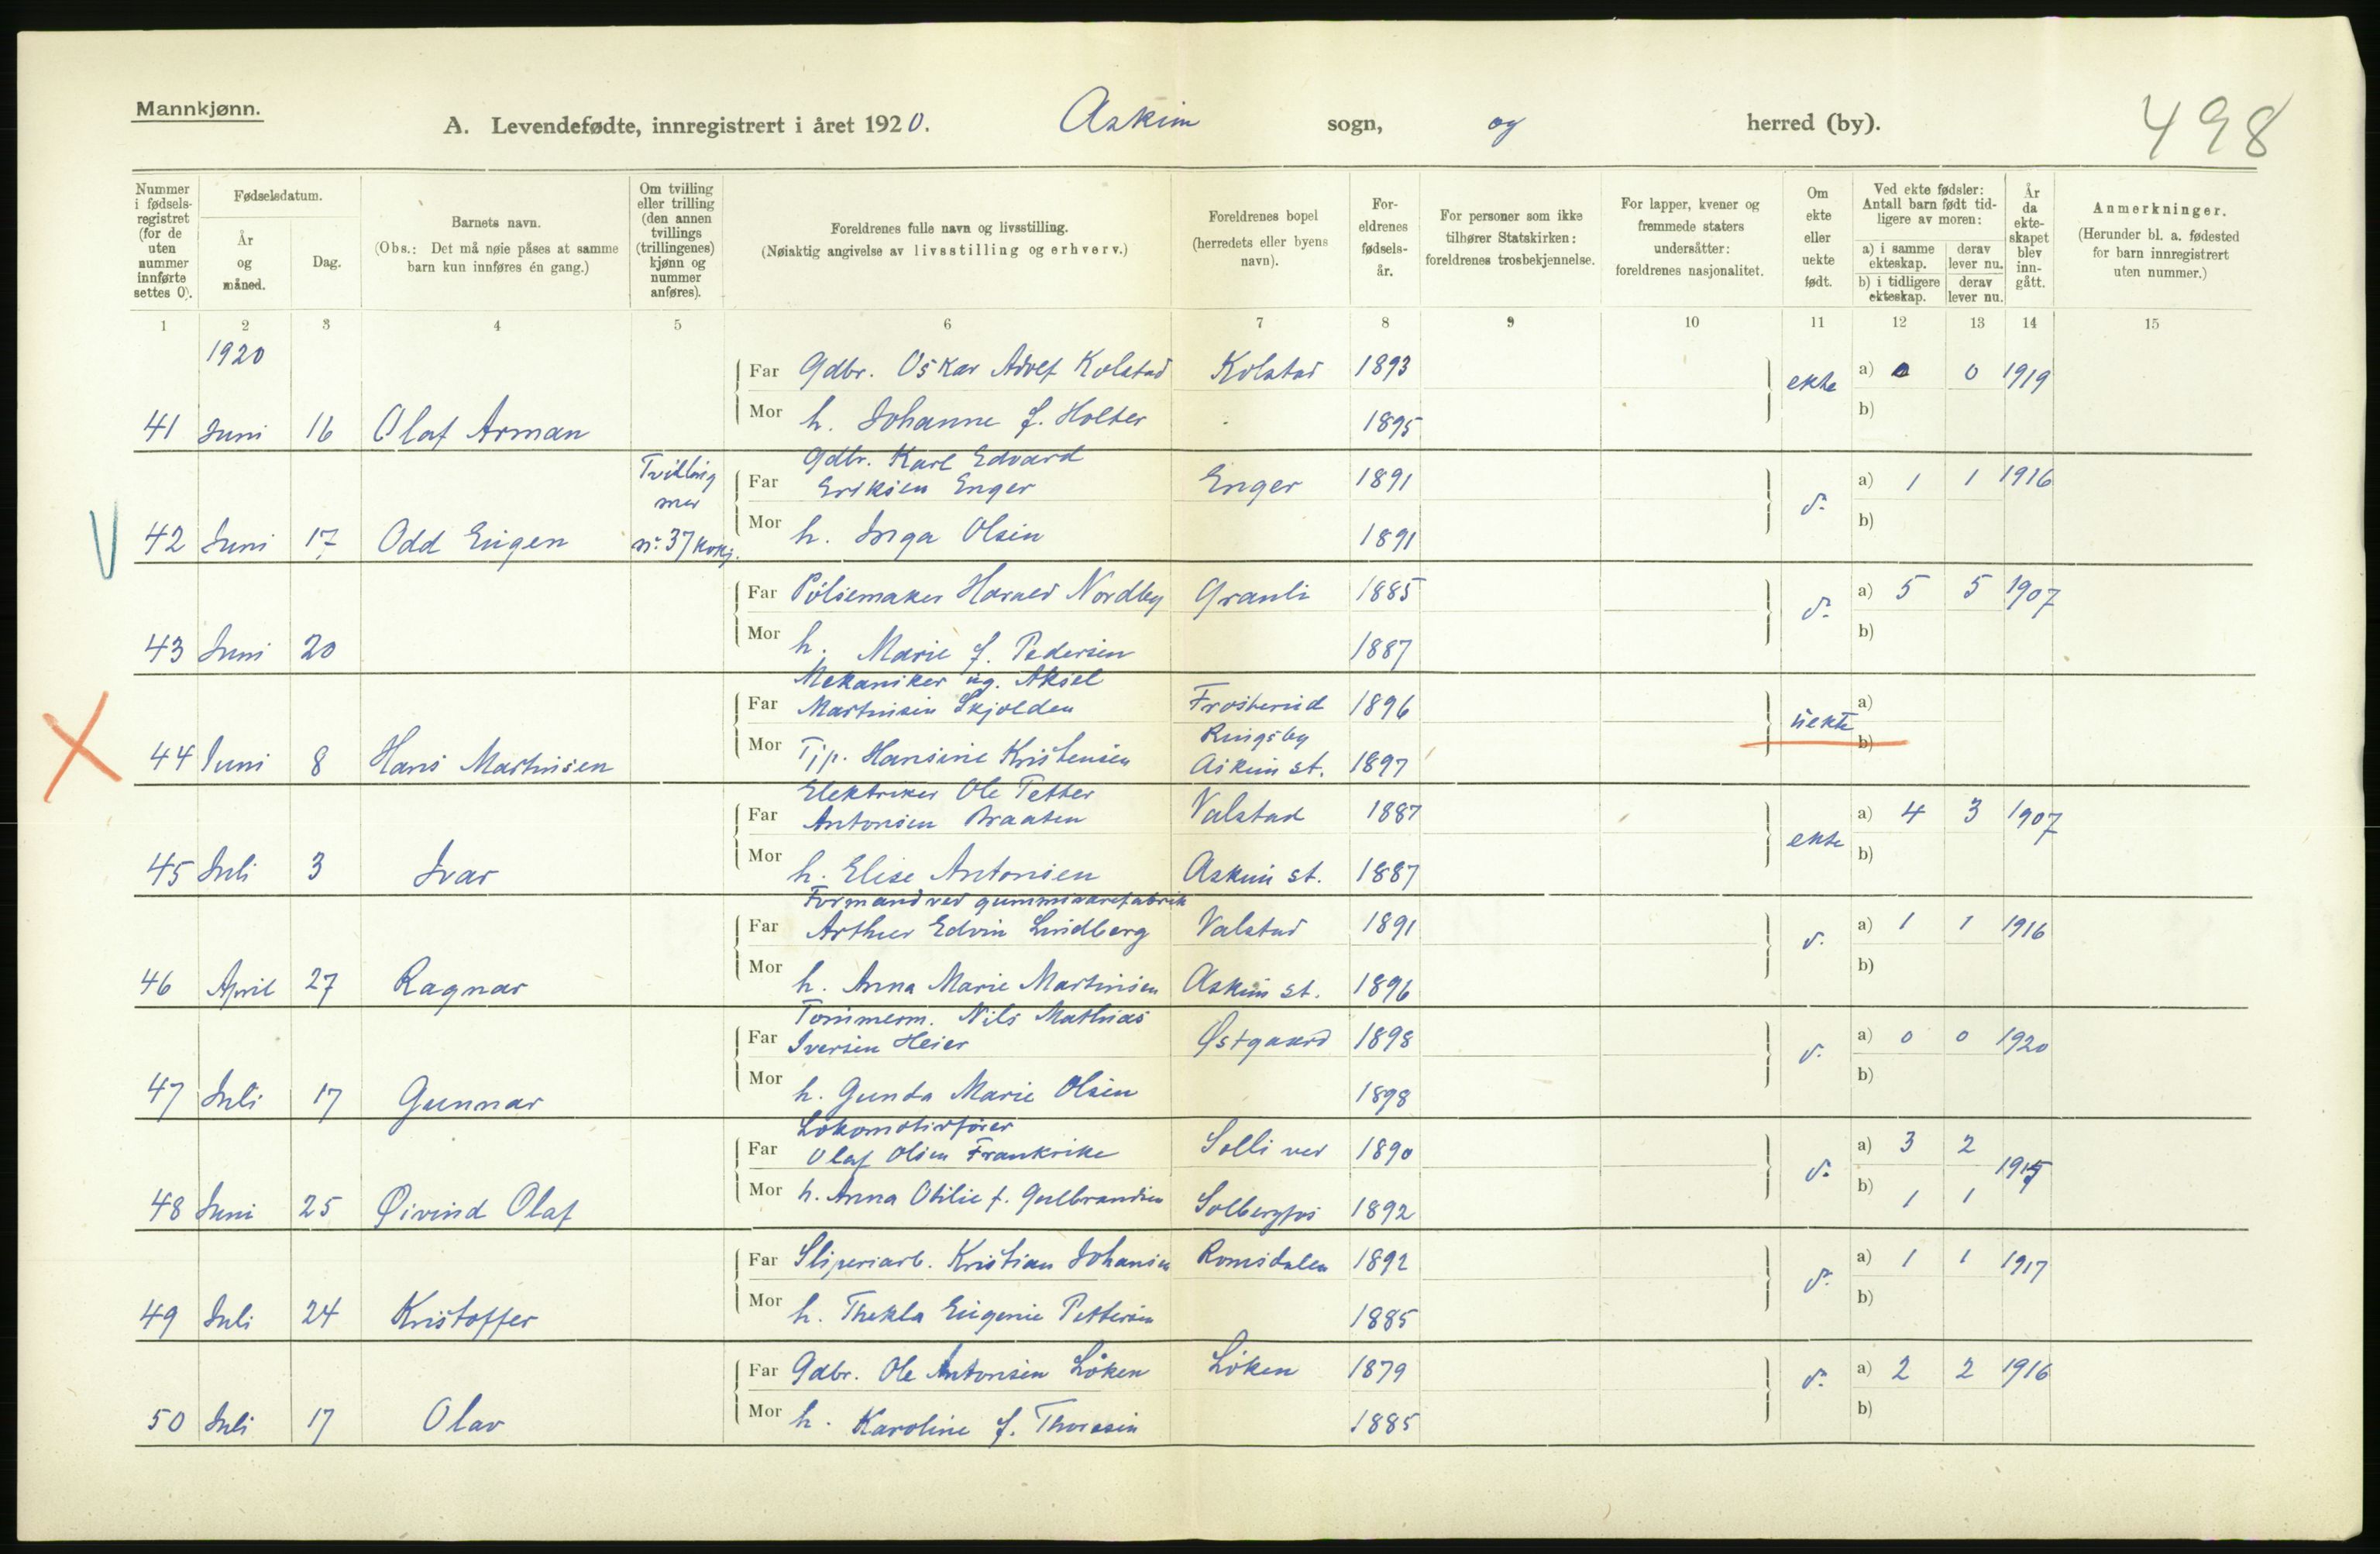 Mannkjønn.
A. Levendefødte, innregistrert i året 1920. Askim sogn, og herred (by).
498
Nummer i fødsels-registret (for de uten nummer innførte settes 0).
Fødselsdatum.
År og måned.
Dag.
Barnets navn.
(Obs.: Det må nøie påses at samme barn kun innføres én gang.)
Om tvilling eller trilling (den annen tvillings (trillingenes) kjønn og nummer anføres).
Foreldrenes fulle navn og livsstilling.
(Nøiaktig angivelse av livsstilling og erhverv.)
Foreldrenes bopel (herredets eller byens navn).
For-eldrenes fødsels-år.
For personer som ikke tilhører Statskirken: foreldrenes trosbekjennelse.
For lapper, kvener og fremmede staters undersåtter: foreldrenes nasjonalitet.
Om ekte eller uekte født.
Ved ekte fødsler: Antall barn født tid-ligere av moren:
a) i samme ekteskap. derav lever nu.
b) i tidligere ekteskap. derav lever nu.
År da ekte-skapet blev inn-gått.
Anmerkninger.
(Herunder bl. a. fødested for barn innregistrert uten nummer.)
1 2 3 4 5 6 7 8 9 10 11 12 13 14 15
1920
Far Gdbr. Oskar Adolf Kolstad Kolstad 1893 ekte a) 0 0 1919
41 Juni 16 Olaf Arman Mor h. Johanne f. Holter 1895 b)
Tvilling med nr. 37 kvkj.
Gdbr. Karl Edvard
Far Eriksen Enger Enger 1891 d. a) 1 1 1916
42 Juni 17 Odd Eugen Mor h. Inga Olsen 1891 b)
Far Pölsemaker Harald Nordby Granli 1885 d. a) 5 5 1907
43 Juni 20 Mor h. Marie f. Pedersen 1887 b)
Mekaniker ug. Aksel
Far Martinsen Skjolden Frosterud 1896 uekte a)
Ringsby
44 Juni 8 Hans Martinsen Mor Tjp. Hansine Kristensen Askim st. 1897 b)
Elektriker Ole Petter
Far Antonsen Braaten Valstad 1887 ekte a) 4 3 1907
45 Juli 3 Ivar Mor h. Elise Antonsen Askim st. 1887 b)
Formand ved gummivarefabrik
Far Arthur Edvin Lindberg Valstad 1891 d. a) 1 1 1916
46 April 27 Ragnar Mor h. Anna Marie Martinsen Askim st. 1896 b)
Tömmerm. Nils Mathias
Far Iversen Heier Østgaard 1898 d. a) 0 0 1920
47 Juli 17 Gunnar Mor h. Gunda Marie Olsen 1898 b)
Lokomotivförer
Far Olaf Olsen Frankrike Solli ved 1890 d. a) 3 2
48 Juni 25 Øivind Olaf Mor h. Anna Otilie f. Gulbrandsen Solbergfos 1892 b) 1 1
Far Sliperiarb. Kristian Johansen Romsdalen 1892 d. a) 1 1 1917
49 Juli 24 Kristoffer Mor h. Thekla Eugenie Pettersen 1885 b)
Far Gdbr. Ole Antonsen Löken Löken 1879 d. a) 2 2 1916
50 Juli 17 Olav Mor h. Karoline f. Thoresen 1885 b)